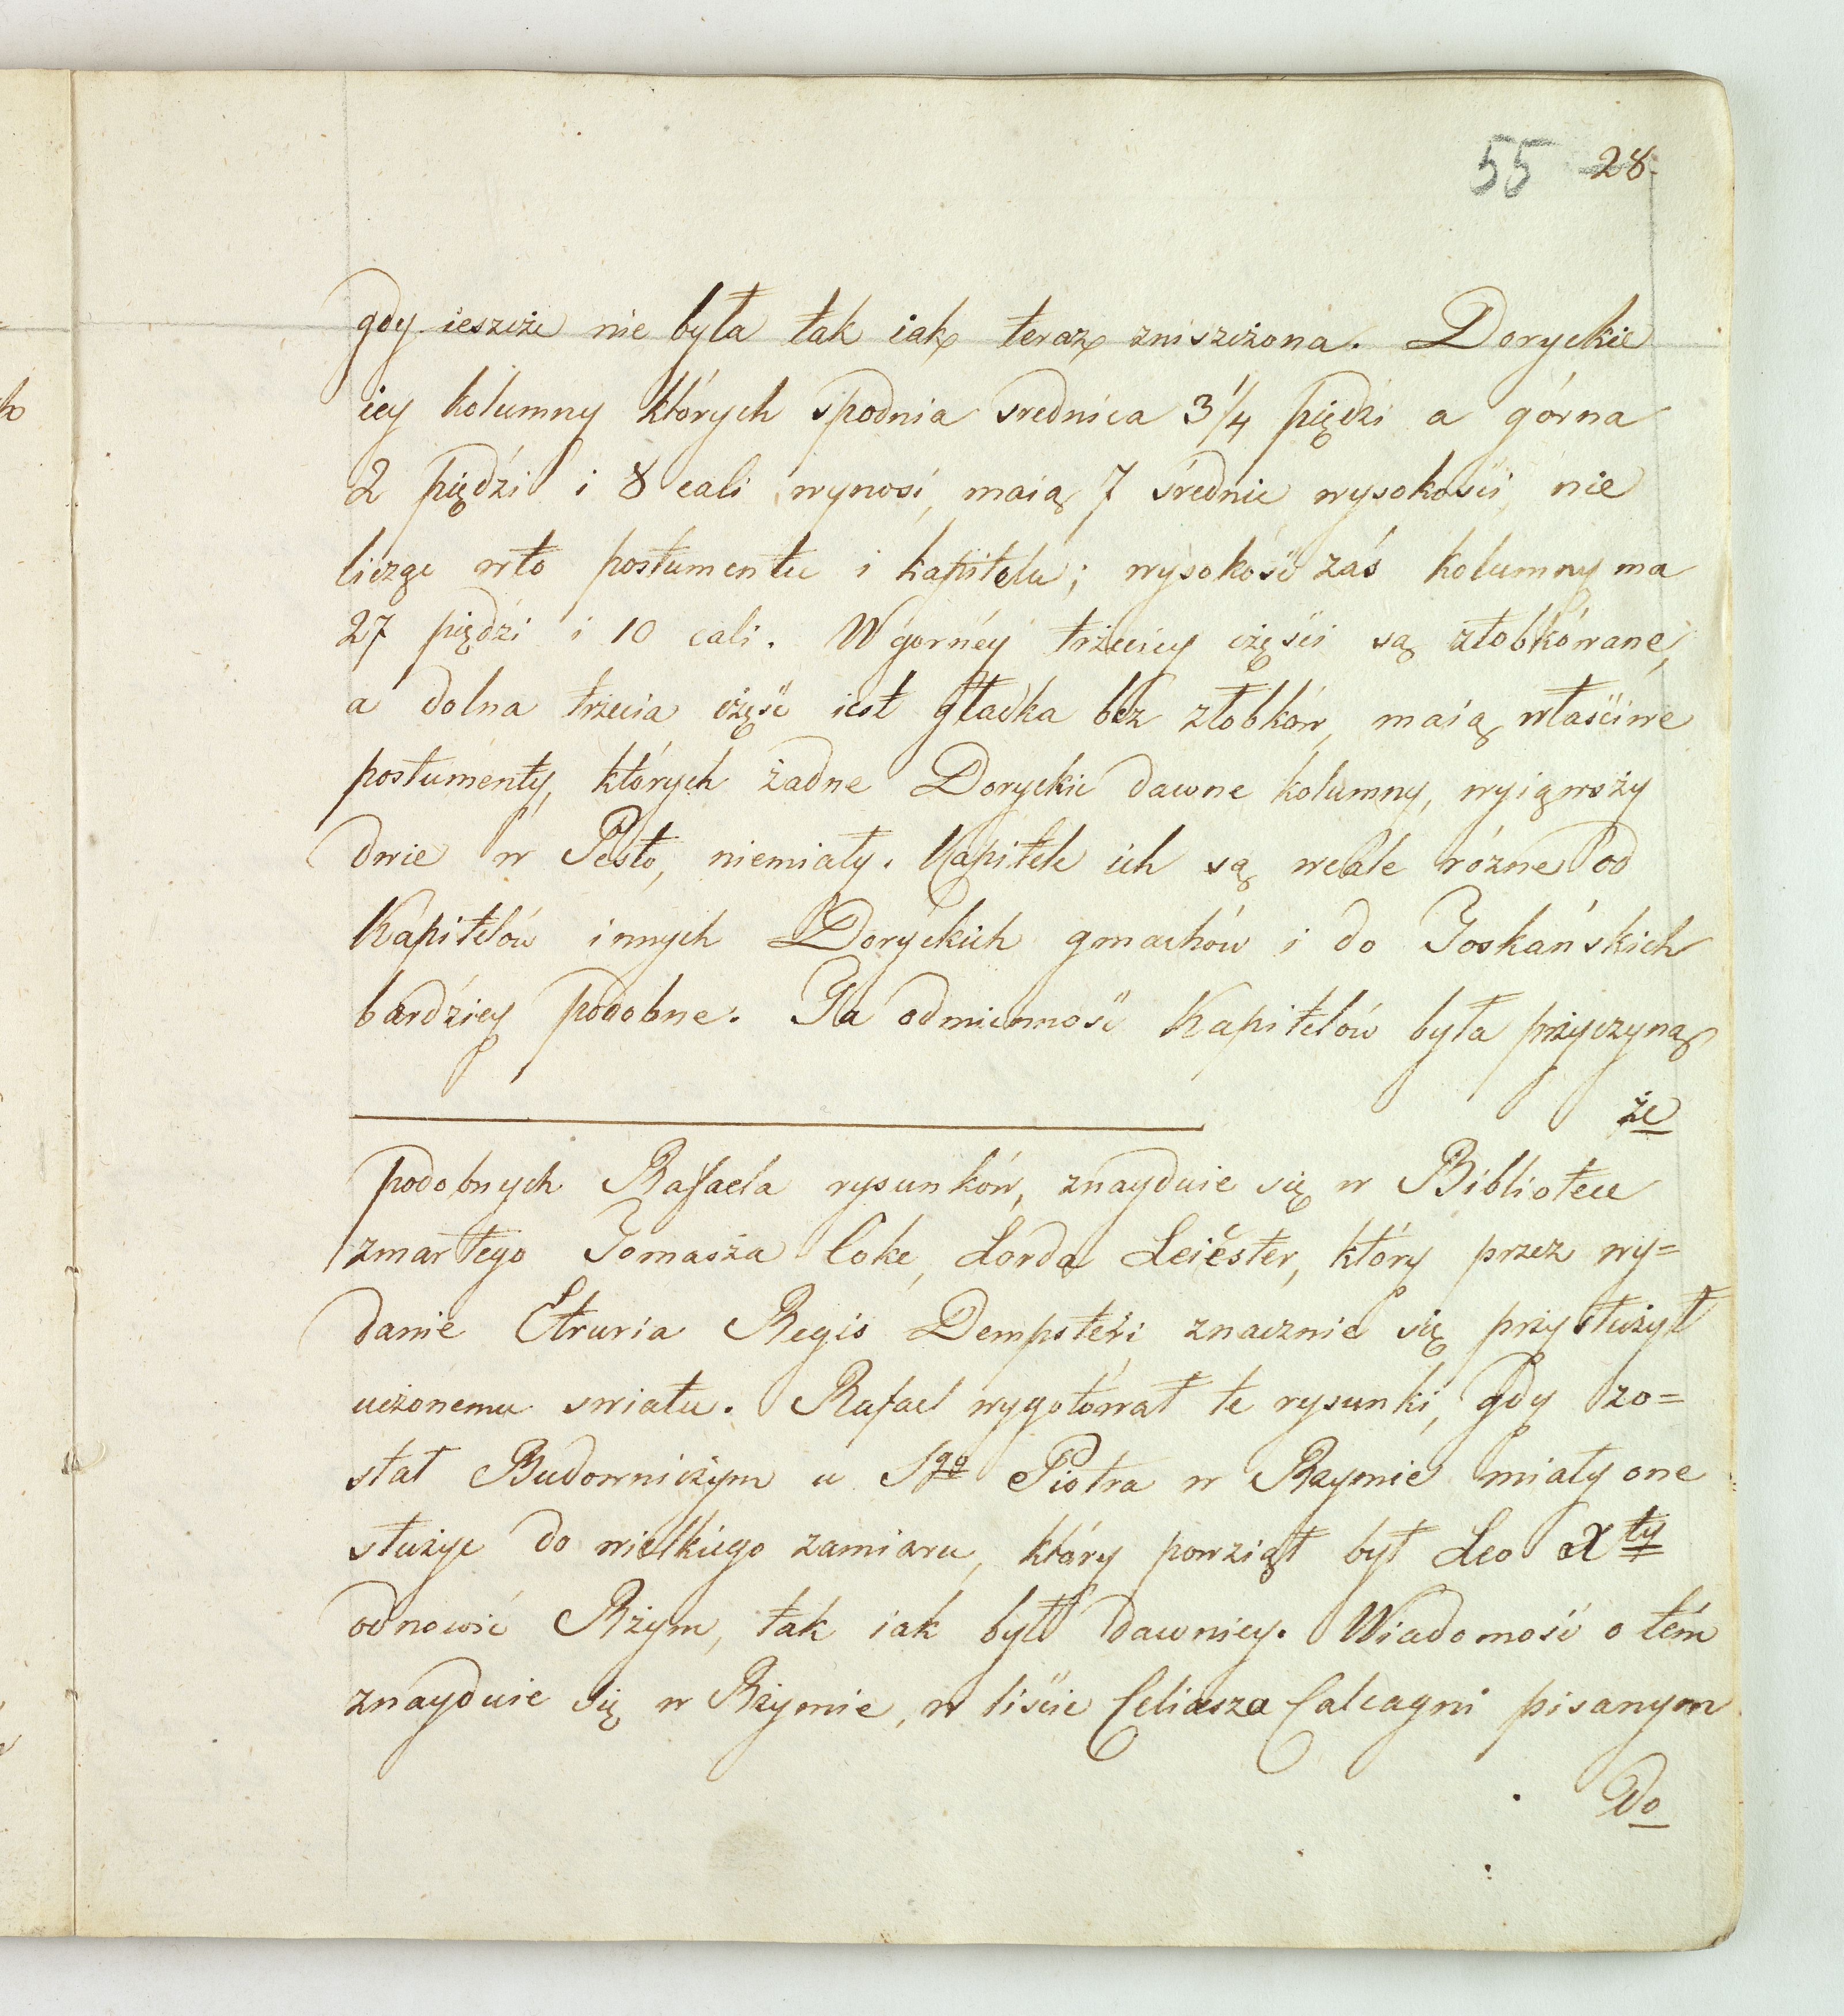 55 28.
gdy ieszcze nie była tak iak teraz zniszczona. Doryckie
iey kolumny których spodnia srednica 3 1/4 piędzi a górna
2 piędzi i 8 cali wynosi, maią 7 średnic wysokości, nie
licząc wto postumentu i kapitelu; wysokość zaś kolumny ma
27 piędzi i 10 cali. W gorney trzeciey części są złobkówane,
a dolna trzecia część iest gładka bez złobków, maią właściwe
postumenty, których żadne Doryckie dawne kolumny, wyiąwszy
dwie w Pesto, niemiały. Kapitele ich są wcale rózne od
Kapitelów innych Doryckich gmachów i do Toskańskich
bardziey podobne. Ta odmienność Kapitelów była przyczyną
że
podobnych Rafaela rysunków, znayduie się w Bibliotece
zmarłego Tomasza Coke, Lorda Leicester, który przez wy=
danie Etruria Regis Dempsteri znacznie się przysłużył
uczonemu swiatu. Rafael wygotówał te rysunki, gdy zo=
stał Budowniczym u Sgo Piotra w Rzymie miały one
służyć do wielkiego zamiaru, który powziął był Leo Xty
odnowić Rzym, tak iak był dawniey. Wiadomość o tém
znayduie się w Rzymie, w liście Celiusza Calcagni pisanym
do